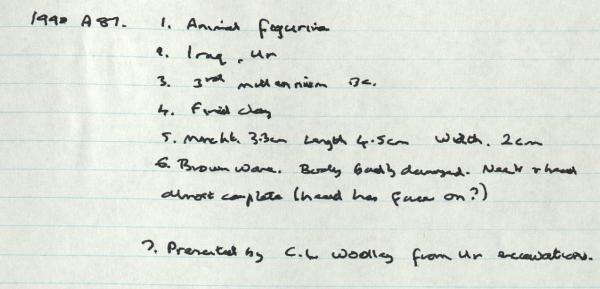 1990 A87. 1. Animal figurine
2. Iraq, Ur
3. 3rd millennium BC.
4. Fired clay
5. Height. 3.3cm Length 4.5cm Width. 2cm
6. Brown ware. Body badly damaged. Neck & head
almost complete (head has face on?)
7. Presented by C.L Woolley from Ur excavations.